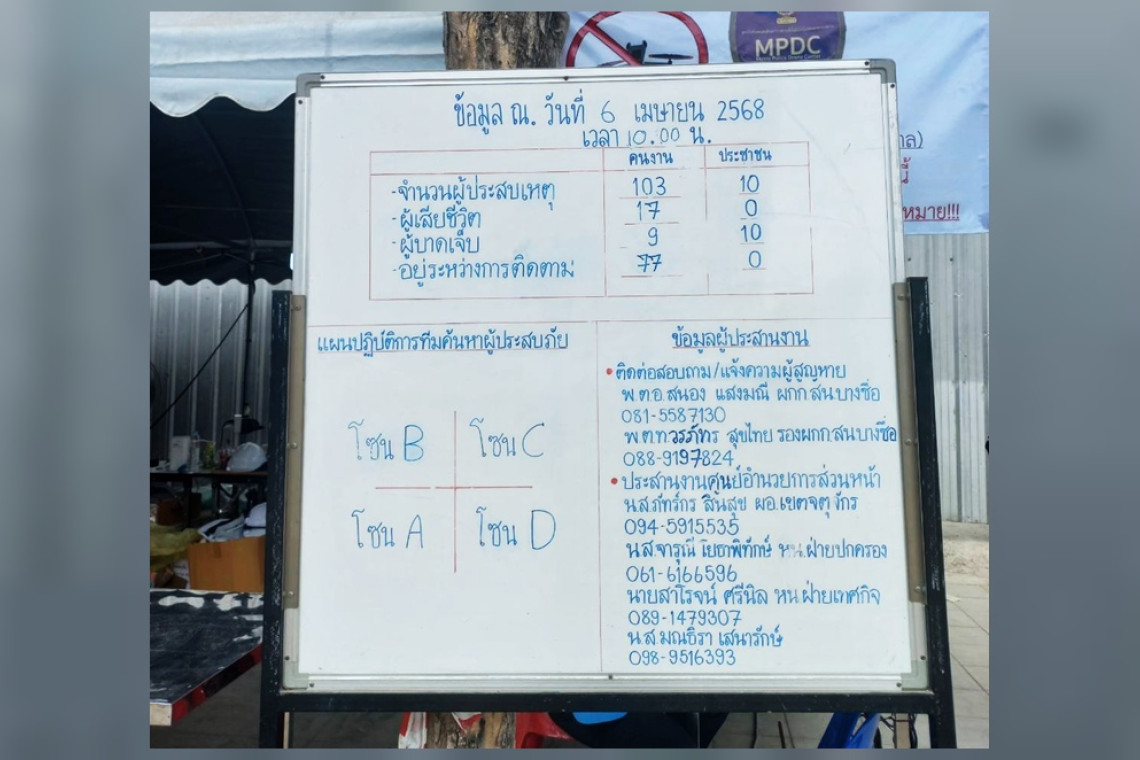 MPDC
ล)
นี้
หมาย!!!
ข้อมูล ณ. วันที่ 6 เมษายน 2568
เวลา 10.00 น.
คนงาน ประชาชน
-จำนวนผู้ประสบเหตุ 103 10
-ผู้เสียชีวิต 17 0
-ผู้บาดเจ็บ 9 10
-อยู่ระหว่างการติดตาม 77 0
แผนปฏิบัติการทีมค้นหาผู้ประสบภัย
โซน B โซน C
โซน A โซน D
ข้อมูลผู้ประสานงาน
• ติดต่อสอบถาม/แจ้งความผู้สูญหาย
พ.ต.อ.สนอง แสงมณี ผกก.สน.บางซื่อ
081-5587130
พ.ต.ท.วรภัทร สุขไทย รองผกก.สน.บางซื่อ
088-9197824
• ประสานงานศูนย์อำนวยการส่วนหน้า
น.ส.ภัทร์กร สินสุข ผอ.เขตจตุจักร
094-5915535
น.ส.จารุณี โยธาพิทักษ์ หน.ฝ่ายปกครอง
061-6166596
นายสาโรจน์ ศรีนิล หน.ฝ่ายเทศกิจ
089-1479307
น.ส.มณธิรา เสนารักษ์
098-9516393